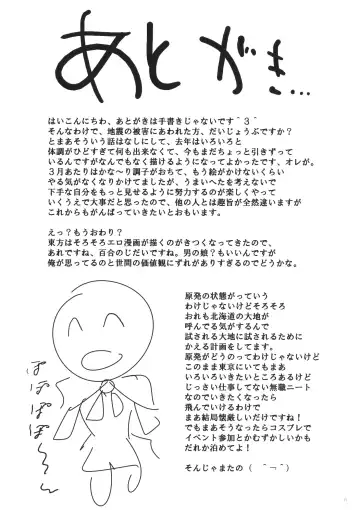 あとがき…
はいこんにちわ、あとがきは手書きじゃないです＾3＾
そんなわけで、地震の被害にあわれた方、だいじょうぶですか？
とまあそういう話はなしにして、去年はいろいろと
体調がひどすぎて何も出来なくて、今もまだちょっと引きずって
いるんですがなんでもなく描けるようになってよかったです、オレが。
３月あたりはかな～り調子がおちて、もう絵がかけないくらい
やる気がなくなりかけてましたが、うまいへたを考えないで
下手な自分をもっと見せるように努力するのが楽しくやって
いくうえで大事だと思ったので、他の人とは趣旨が全然違いますが
これからもがんばっていきたいとおもいます。
えっ？もうおわり？
東方はそろそろエロ漫画が描くのがきつくなってきたので、
あれですね、百合のじだいですね。男の娘？もいいんですが
俺が思ってるのと世間の価値観にずれがありすぎるのでどうかな。
原発の状態がっていう
わけじゃないけどそろそろ
おれも北海道の大地が
呼んでる気がするんで
試される大地に試されるために
かえる計画をしてます。
原発がどうのってわけじゃないけど
このまま東京にいてもまあ
いろいろいきたいところあるけど
じっさい仕事してない無職ニート
なのでいきたくなったら
飛んでいけるわけで
まあ結局懐厳しいだけですね！
でもまあそうなったらコスプレで
イベント参加とかむずかしいかも
だれか泊めてよ！
そんじゃまたの（ ＾¬＾）
ぽぽぽぽ～ん